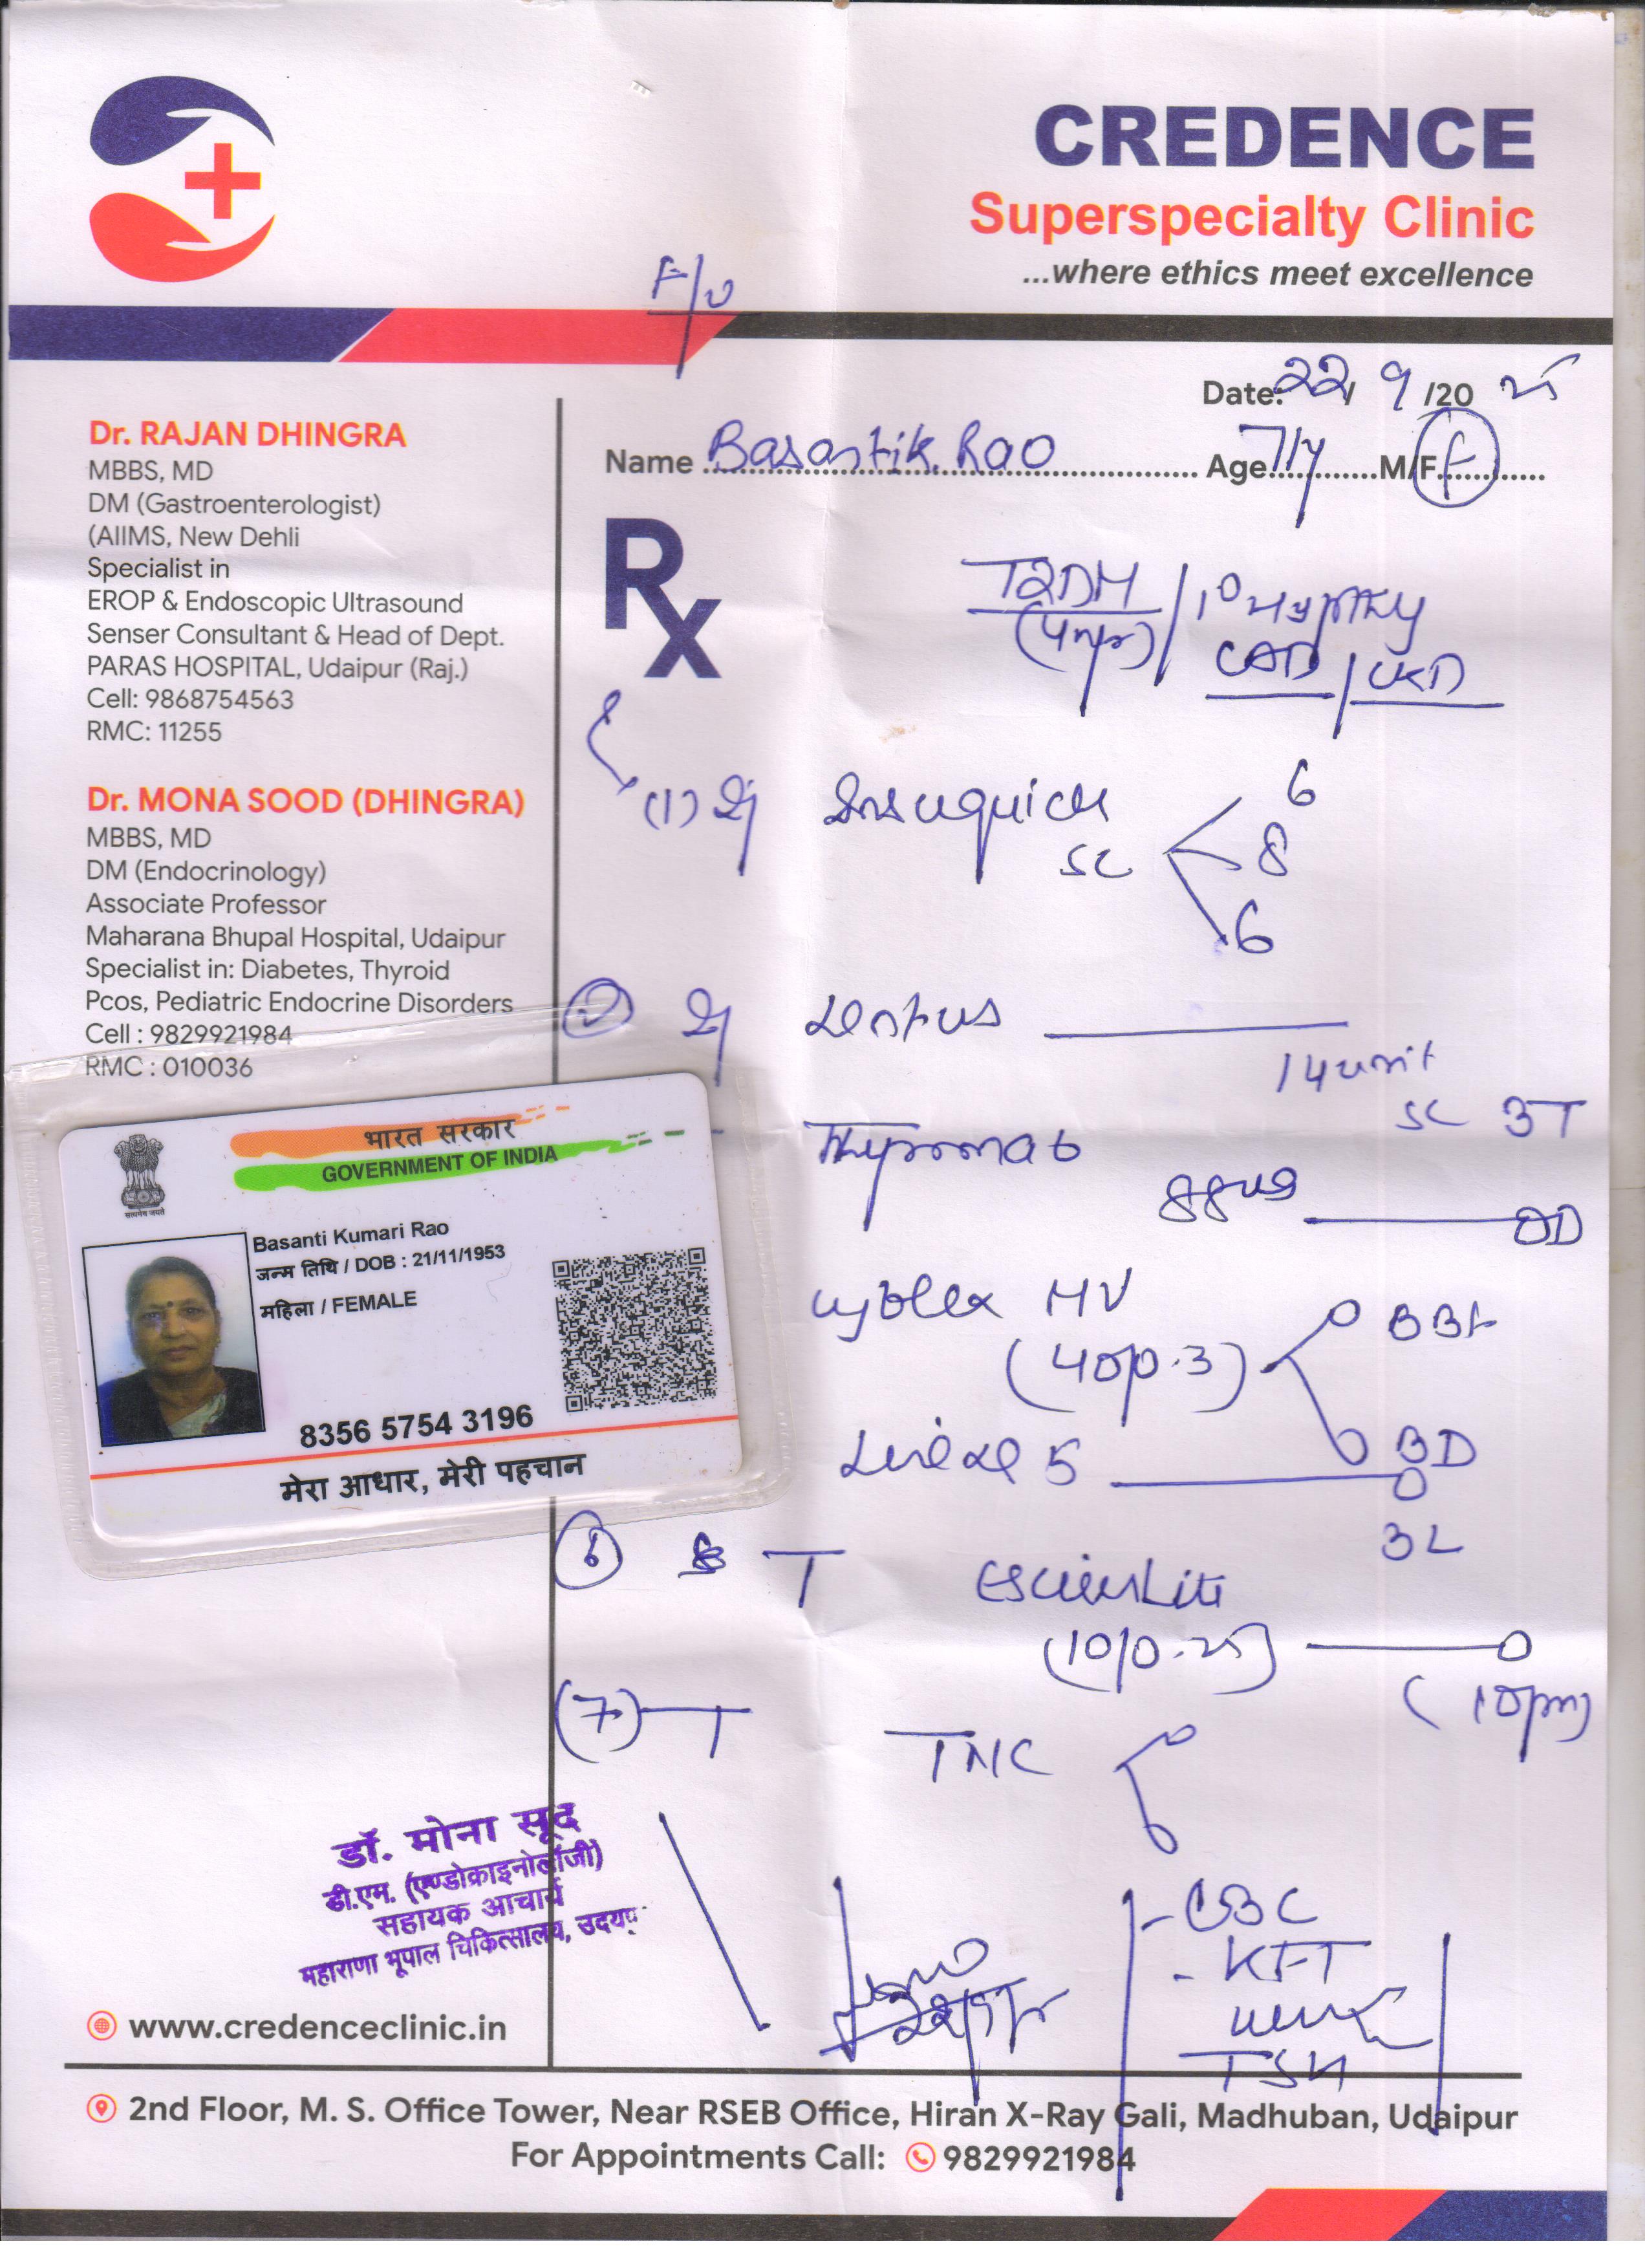 CREDENCE
Superspecialty Clinic
...where ethics meet excellence
F/U
Date: 22/ 9 /20 25
Name Basanti K. Rao Age 71y M/F f
Dr. RAJAN DHINGRA
MBBS, MD
DM (Gastroenterologist)
(AIIMS, New Dehli
Specialist in
EROP & Endoscopic Ultrasound
Senser Consultant & Head of Dept.
PARAS HOSPITAL, Udaipur (Raj.)
Cell: 9868754563
RMC: 11255
Dr. MONA SOOD (DHINGRA)
MBBS, MD
DM (Endocrinology)
Associate Professor
Maharana Bhupal Hospital, Udaipur
Specialist in: Diabetes, Thyroid
Pcos, Pediatric Endocrine Disorders
Cell : 9829921984
RMC : 010036
भारत सरकार
GOVERNMENT OF INDIA
सत्यमेव जयते
Basanti Kumari Rao
जन्म तिथि / DOB : 21/11/1953
महिला / FEMALE
8356 5754 3196
मेरा आधार, मेरी पहचान
Rx
T2DM / 1°
CAD / CKD
(1) Insuquick
SC
6
8
6
2
14 unit
SC BT
88ug
OD
MV
(40/0.3)
BBF
BD
5
BL
6 T
(10/0.25)
(10pm)
(7) T
- CBC
- KFT
TSH
22/9/25
डॉ. मोना सूद
डी.एम. (एण्डोक्राइनोलॉजी)
सहायक आचार्य
महाराणा भूपाल चिकित्सालय,
www.credenceclinic.in
2nd Floor, M. S. Office Tower, Near RSEB Office, Hiran X-Ray Gali, Madhuban, Udaipur
For Appointments Call: 9829921984